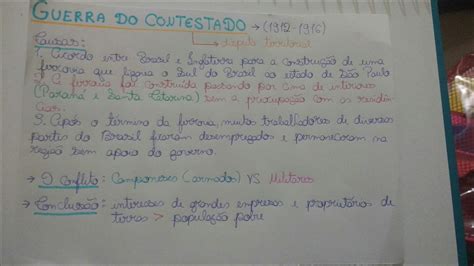 GUERRA DO CONTESTADO → (1912-1916)
→ disputa territorial
Causas:
1. Acordo entre Brasil e Inglaterra para a construção de uma
ferrovia que ligaria o Sul do Brasil ao estado de São Paulo
2. A ferrovia foi construída passando por cima de interiores
(Paraná e Santa Catarina) sem a preocupação com as residên
cias.
3. Após o término da ferrovia, muitos trabalhadores de diversas
partes do Brasil ficaram desempregados e permaneceram na
região sem apoio do governo.
→ O conflito: Camponeses (armados) VS Militares
→ Conclusão: interesses de grandes empresas e proprietários de
terras > população pobre